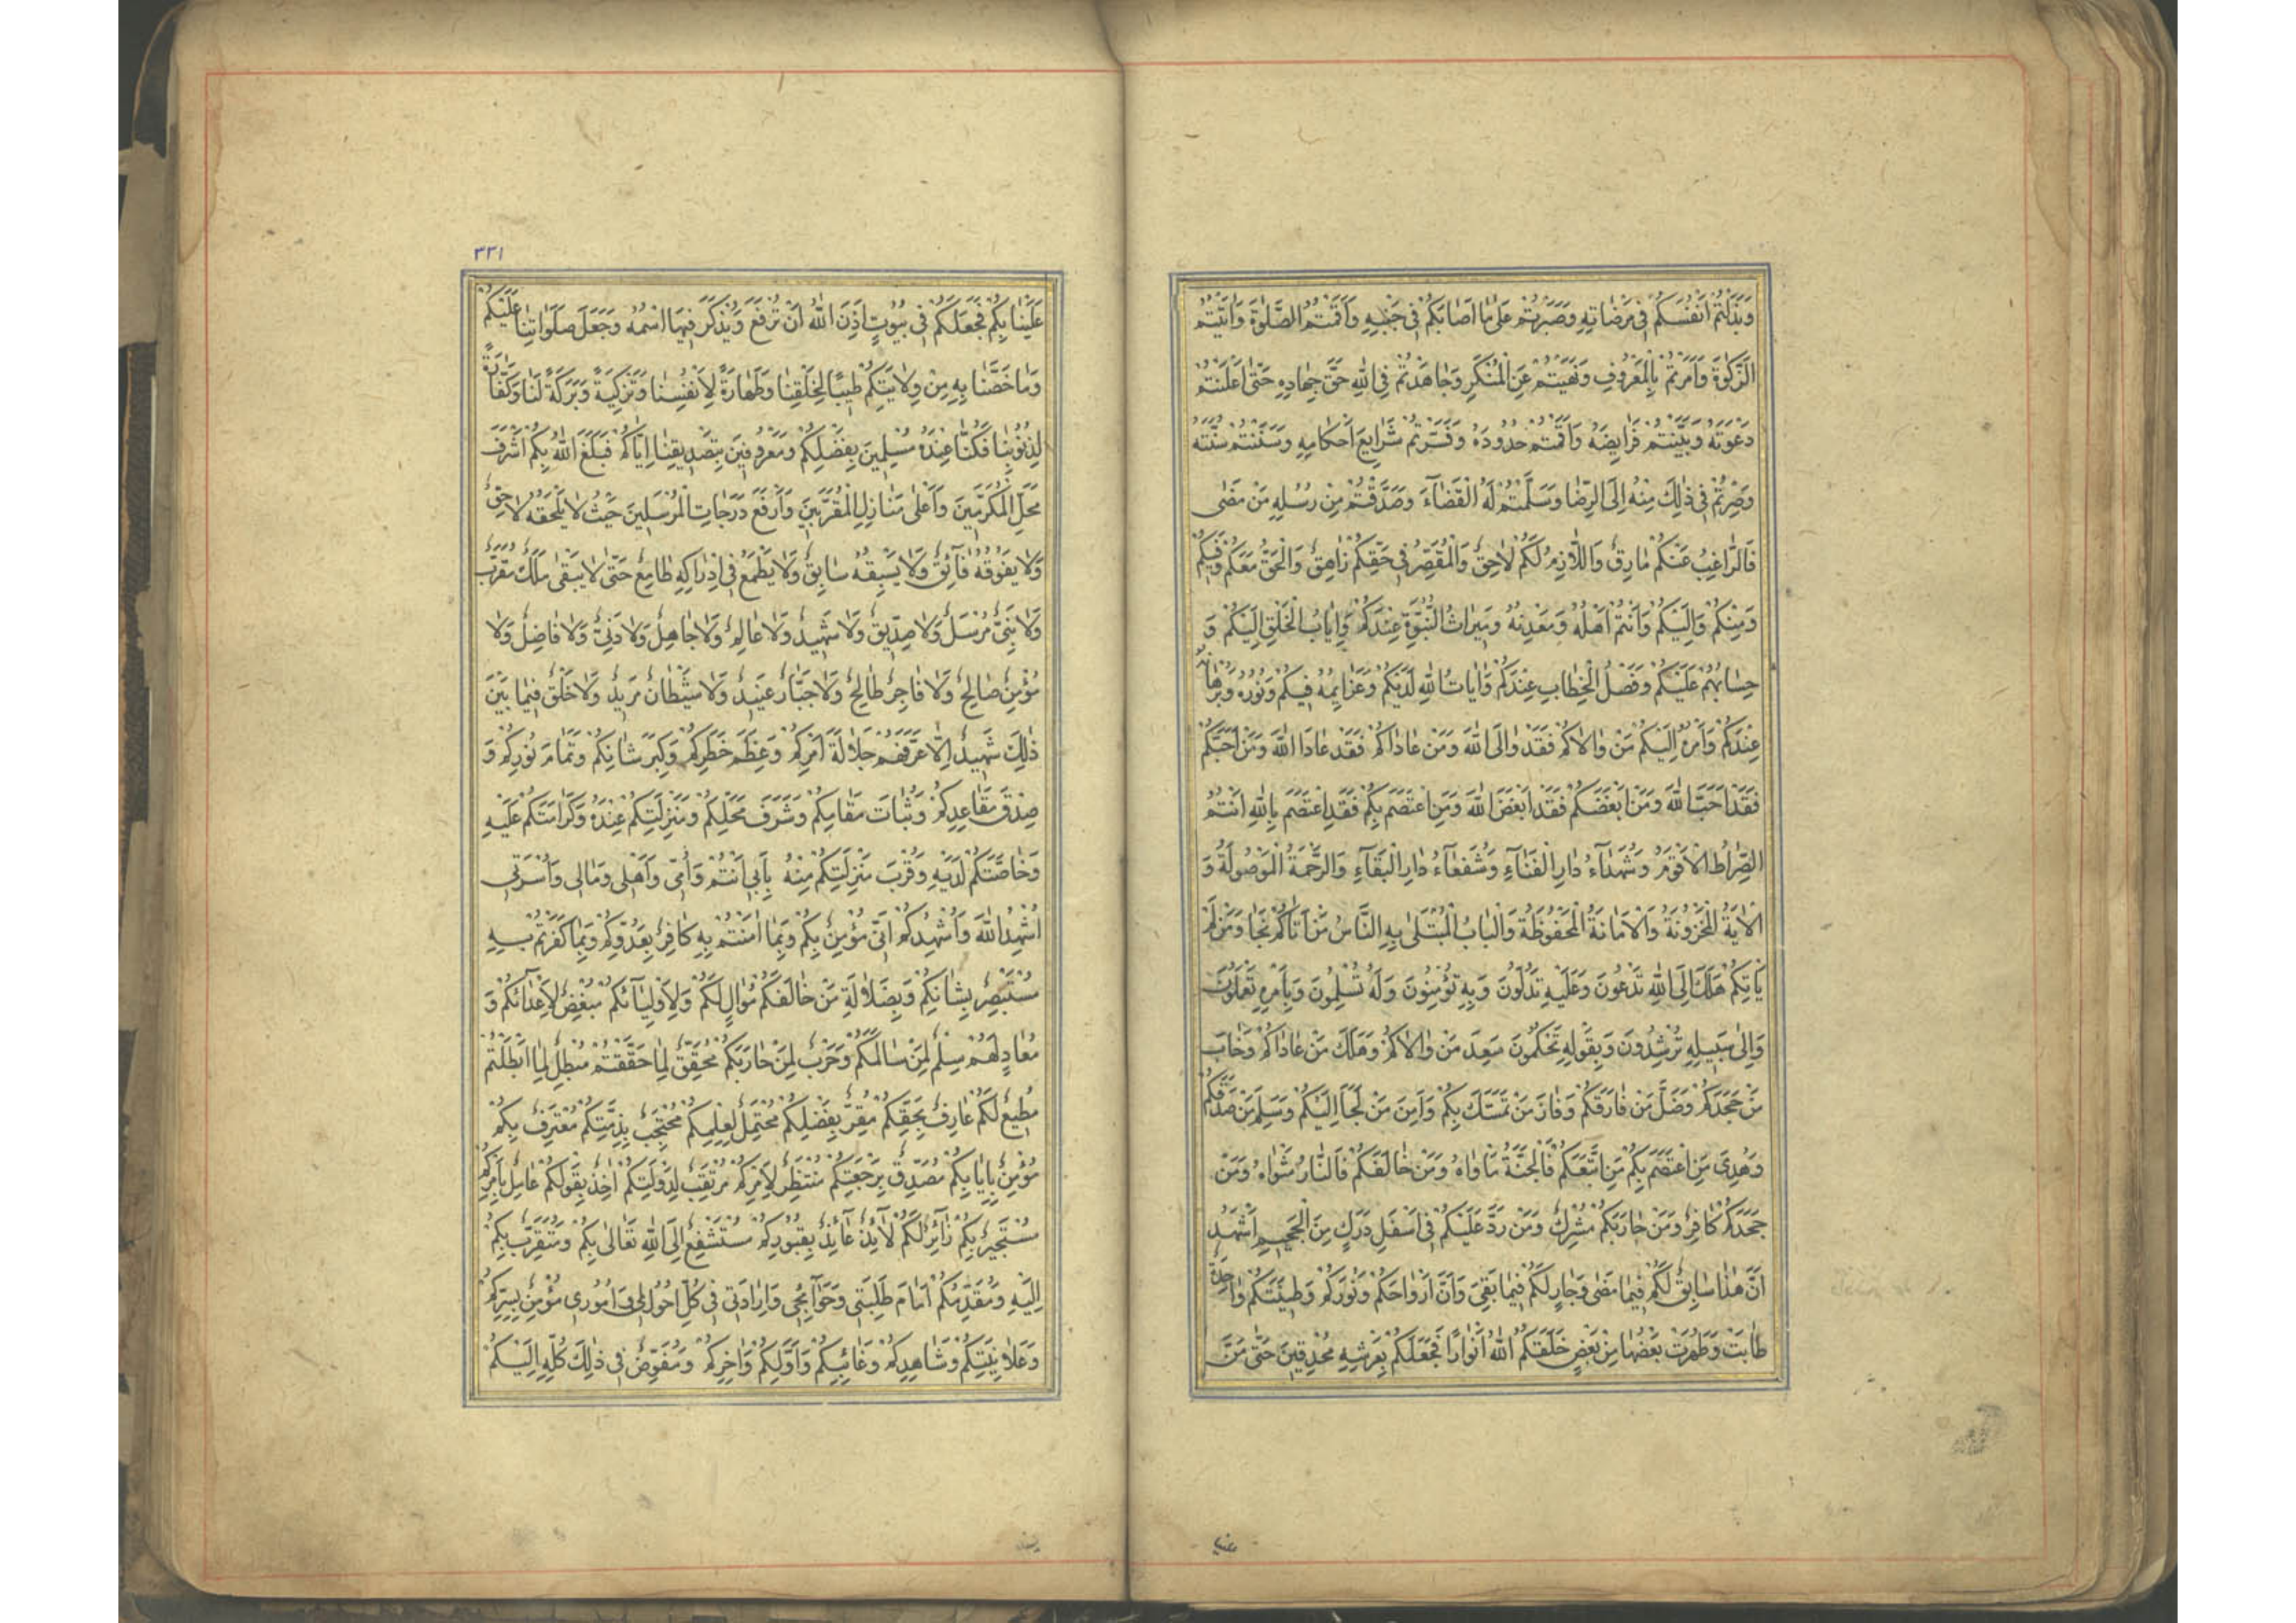 وَبَذَلْتُمْ اَنْفُسَكُمْ فى مَرْضاتِهِ وَصَبَرْتُمْ عَلى ما اَصابَكُمْ فى جَنْبِهِ وَاَقَمْتُمُ الصَّلوةَ وَاتَيْتُمُ
الزَّكوةَ وَاَمَرْتُمْ بِالْمَعْرُوفِ وَنَهَيْتُمْ عَنِ الْمُنْكَرِ وَجاهَدْتُمْ فِى اللهِ حَقَّ جِهادِهِ حَتّى اَعْلَنْتُمْ
دَعْوَتَهُ وَبَيَّنْتُمْ فَرايِضَهُ وَاَقَمْتُمْ حُدُودَهُ وَنَشَرْتُمْ شَرايِعَ اَحْكامِهِ وَسَنَنْتُمْ سُنَّتَهُ
وَصِرْتُمْ فى ذلِكَ مِنْهُ اِلَى الرِّضا وَسَلَّمْتُمْ لَهُ الْقَضآءَ وَصَدَّقْتُمْ مِنْ رُسُلِهِ مَنْ مَضى
فَالرّاغِبُ عَنْكُمْ مارِقٌ وَاللّازِمُ لَكُمْ لاحِقٌ وَالْمُقَصِّرُ فى حَقِّكُمْ زاهِقٌ وَالْحَقُّ مَعَكُمْ وَفيكُمْ
وَمِنْكُمْ وَاِلَيْكُمْ وَاَنْتُمْ اَهْلُهُ وَمَعْدِنُهُ وَميراثُ النُّبُوَّةِ عِنْدَكُمْ وَاِيابُ الْخَلْقِ اِلَيْكُمْ وَ
حِسابُهُمْ عَلَيْكُمْ وَفَصْلُ الْخِطابِ عِنْدَكُمْ وَاياتُ اللهِ لَدَيْكُمْ وَعَزايِمُهُ فيكُمْ وَنُورُهُ وَبُرْهانُهُ
عِنْدَكُمْ وَاَمْرُهُ اِلَيْكُمْ مَنْ والاكُمْ فَقَدْ والَى اللهَ وَمَنْ عاداكُمْ فَقَدْ عادَا اللهَ وَمَنْ اَحَبَّكُمْ
فَقَدْ اَحَبَّ اللهَ وَمَنْ اَبْغَضَكُمْ فَقَدْ اَبْغَضَ اللهَ وَمَنِ اعْتَصَمَ بِكُمْ فَقَدِ اعْتَصَمَ بِاللهِ اَنْتُمُ
الصِّراطُ الْاَقْوَمُ وَشُهَدآءُ دارِ الْفَنآءِ وَشُفَعآءُ دارِ الْبَقآءِ وَالرَّحْمَةُ الْمَوْصُولَةُ وَ
الْايَةُ الْمَخْزُونَةُ وَالْاَمانَةُ الْمَحْفُوظَةُ وَالْبابُ الْمُبْتَلى بِهِ النّاسُ مَنْ اَتاكُمْ نَجا وَمَنْ لَمْ
يَاْتِكُمْ هَلَكَ اِلَى اللهِ تَدْعُونَ وَعَلَيْهِ تَدُلُّونَ وَبِهِ تُؤْمِنُونَ وَلَهُ تُسَلِّمُونَ وَبِاَمْرِهِ تَعْمَلُونَ
وَاِلى سَبيلِهِ تُرْشِدُونَ وَبِقَوْلِهِ تَحْكُمُونَ سَعِدَ مَنْ والاكُمْ وَهَلَكَ مَنْ عاداكُمْ وَخابَ
مَنْ جَحَدَكُمْ وَضَلَّ مَنْ فارَقَكُمْ وَفازَ مَنْ تَمَسَّكَ بِكُمْ وَاَمِنَ مَنْ لَجَاَ اِلَيْكُمْ وَسَلِمَ مَنْ صَدَّقَكُمْ
وَهُدِىَ مَنِ اعْتَصَمَ بِكُمْ مَنِ اتَّبَعَكُمْ فَالْجَنَّةُ مَاْواهُ وَمَنْ خالَفَكُمْ فَالنّارُ مَثْواهُ وَمَنْ
جَحَدَكُمْ كافِرٌ وَمَنْ حارَبَكُمْ مُشْرِكٌ وَمَنْ رَدَّ عَلَيْكُمْ فى اَسْفَلِ دَرَكٍ مِنَ الْجَحيمِ اَشْهَدُ
اَنَّ هذا سابِقٌ لَكُمْ فيما مَضى وَجارٍ لَكُمْ فيما بَقِىَ وَاَنَّ اَرْواحَكُمْ وَنُورَكُمْ وَطينَتَكُمْ واحِدَةٌ
طابَتْ وَطَهُرَتْ بَعْضُها مِنْ بَعْضٍ خَلَقَكُمُ اللهُ اَنْوارًا فَجَعَلَكُمْ بِعَرْشِهِ مُحْدِقينَ حَتّى مَنَّ
٣٣١
عَلَيْنا بِكُمْ فَجَعَلَكُمْ فى بُيُوتٍ اَذِنَ اللهُ اَنْ تُرْفَعَ وَيُذْكَرَ فيهَا اسْمُهُ وَجَعَلَ صَلَواتِنا عَلَيْكُمْ
وَما خَصَّنا بِهِ مِنْ وِلايَتِكُمْ طيبًا لِخَلْقِنا وَطَهارَةً لِاَنْفُسِنا وَتَزْكِيَةً وَبَرَكَةً لَنا وَكَفّارَةً
لِذُنُوبِنا فَكُنّا عِنْدَهُ مُسَلِّمينَ بِفَضْلِكُمْ وَمَعْرُوفينَ بِتَصْديقِنا اِيّاكُمْ فَبَلَغَ اللهُ بِكُمْ اَشْرَفَ
مَحَلِّ الْمُكَرَّمينَ وَاَعْلى مَنازِلِ الْمُقَرَّبينَ وَاَرْفَعَ دَرَجاتِ الْمُرْسَلينَ حَيْثُ لا يَلْحَقُهُ لاحِقٌ
وَلا يَفُوقُهُ فآئِقٌ وَلا يَسْبِقُهُ سابِقٌ وَلا يَطْمَعُ فى اِدْراكِهِ طامِعٌ حَتّى لا يَبْقى مَلَكٌ مُقَرَّبٌ
وَلا نَبِىٌّ مُرْسَلٌ وَلا صِدّيقٌ وَلا شَهيدٌ وَلا عالِمٌ وَلا جاهِلٌ وَلا دَنِىٌّ وَلا فاضِلٌ وَلا
مُؤْمِنٌ صالِحٌ وَلا فاجِرٌ طالِحٌ وَلا جَبّارٌ عَنيدٌ وَلا شَيْطانٌ مَريدٌ وَلا خَلْقٌ فيما بَيْنَ
ذلِكَ شَهيدٌ اِلّا عَرَّفَهُمْ جَلالَةَ اَمْرِكُمْ وَعِظَمَ خَطَرِكُمْ وَكِبَرَ شانِكُمْ وَتَمامَ نُورِكُمْ وَ
صِدْقَ مَقاعِدِكُمْ وَثَباتَ مَقامِكُمْ وَشَرَفَ مَحَلِّكُمْ وَمَنْزِلَتِكُمْ عِنْدَهُ وَكَرامَتَكُمْ عَلَيْهِ
وَخاصَّتَكُمْ لَدَيْهِ وَقُرْبَ مَنْزِلَتِكُمْ مِنْهُ بِاَبى اَنْتُمْ وَاُمّى وَاَهْلى وَمالى وَاُسْرَتى
اُشْهِدُ اللهَ وَاُشْهِدُكُمْ اَنّى مُؤْمِنٌ بِكُمْ وَبِما امَنْتُمْ بِهِ كافِرٌ بِعَدُوِّكُمْ وَبِما كَفَرْتُمْ بِهِ
مُسْتَبْصِرٌ بِشانِكُمْ وَبِضَلالَةِ مَنْ خالَفَكُمْ مُوالٍ لَكُمْ وَلِاَوْلِيآئِكُمْ مُبْغِضٌ لِاَعْدآئِكُمْ وَ
مُعادٍ لَهُمْ سِلْمٌ لِمَنْ سالَمَكُمْ وَحَرْبٌ لِمَنْ حارَبَكُمْ مُحَقِّقٌ لِما حَقَّقْتُمْ مُبْطِلٌ لِما اَبْطَلْتُمْ
مُطيعٌ لَكُمْ عارِفٌ بِحَقِّكُمْ مُقِرٌّ بِفَضْلِكُمْ مُحْتَمِلٌ لِعِلْمِكُمْ مُحْتَجِبٌ بِذِمَّتِكُمْ مُعْتَرِفٌ بِكُمْ
مُؤْمِنٌ بِاِيابِكُمْ مُصَدِّقٌ بِرَجْعَتِكُمْ مُنْتَظِرٌ لِاَمْرِكُمْ مُرْتَقِبٌ لِدَوْلَتِكُمْ اخِذٌ بِقَوْلِكُمْ عامِلٌ بِاَمْرِكُمْ
مُسْتَجيرٌ بِكُمْ زآئِرٌ لَكُمْ لآئِذٌ عآئِذٌ بِقُبُورِكُمْ مُسْتَشْفِعٌ اِلَى اللهِ تَعالى بِكُمْ وَمُتَقَرِّبٌ بِكُمْ
اِلَيْهِ وَمُقَدِّمُكُمْ اَمامَ طَلِبَتى وَحَوآئِجى وَاِرادَتى فى كُلِّ اَحْوالى وَ اُمُورى مُؤْمِنٌ بِسِرِّكُمْ
وَعَلانِيَتِكُمْ وَشاهِدِكُمْ وَغائِبِكُمْ وَاَوَّلِكُمْ وَاخِرِكُمْ وَمُفَوِّضٌ فى ذلِكَ كُلِّهِ اِلَيْكُمْ